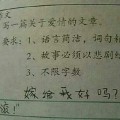 写一篇关于爱情的文章。
要求：1、语言简洁，词句
2、故事必须以悲剧
3、不限字数
嫁给我好吗？
滚！"